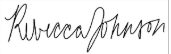 Rebecca Johnson